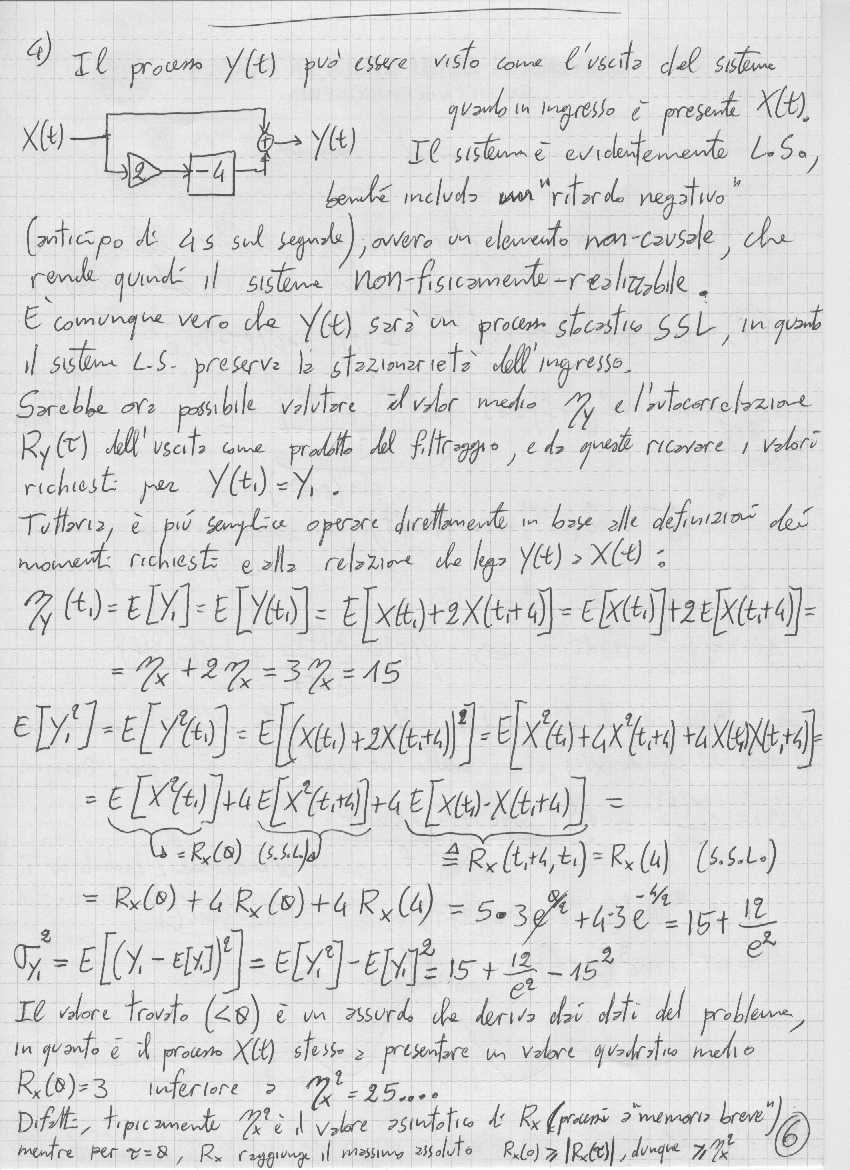 4) Il processo Y(t) può essere visto come l'uscita del sistema
quando in ingresso è presente X(t).
X(t) 2 -4 + Y(t)
Il sistema è evidentemente L.S.,
benché includa un "ritardo negativo"
(anticipo di 4s sul segnale), ovvero un elemento non-causale, che
rende quindi il sistema non-fisicamente-realizzabile.
E' comunque vero che Y(t) sarà un processo stocastico SSL, in quanto
il sistema L.S. preserva la stazionarietà dell'ingresso.
Sarebbe ora possibile valutare il valor medio η_Y e l'autocorrelazione
R_Y(τ) dell'uscita come prodotto del filtraggio, e da queste ricavare i valori
richiesti per Y(t₁)=Y₁.
Tuttavia, è più semplice operare direttamente in base alle definizioni dei
momenti richiesti e alla relazione che lega Y(t) a X(t):
η_Y(t₁) = E[Y₁] = E[Y(t₁)] = E[X(t₁)+2X(t₁+4)] = E[X(t₁)]+2E[X(t₁+4)] =
= η_X + 2η_X = 3η_X = 15
E[Y₁²] = E[Y²(t₁)] = E[(X(t₁)+2X(t₁+4))²] = E[X²(t₁)+4X²(t₁+4)+4X(t₁)X(t₁+4)] =
= E[X²(t₁)]+4E[X²(t₁+4)]+4E[X(t₁)·X(t₁+4)] =
↳ = R_X(0) (s.s.l.) ≜ R_X(t₁+4,t₁) = R_X(4) (s.s.l.)
= R_X(0) + 4R_X(0) + 4R_X(4) = 5·3e^{0/2} + 4·3e^{-4/2} = 15 + 12/e²
σ²_{Y₁} = E[(Y₁-E[Y₁])²] = E[Y₁²]-E[Y₁]² = 15 + 12/e² - 15²
Il valore trovato (<0) è un assurdo che deriva dai dati del problema,
in quanto è il processo X(t) stesso a presentare un valore quadratico medio
R_X(0)=3 inferiore a η_X²=25....
Difatti, tipicamente η_X² è il valore asintotico di R_X (processi a "memoria breve")
mentre per τ=0, R_X raggiunge il massimo assoluto R_X(0) ≥ |R_X(τ)|, dunque ≥ η_X²
6